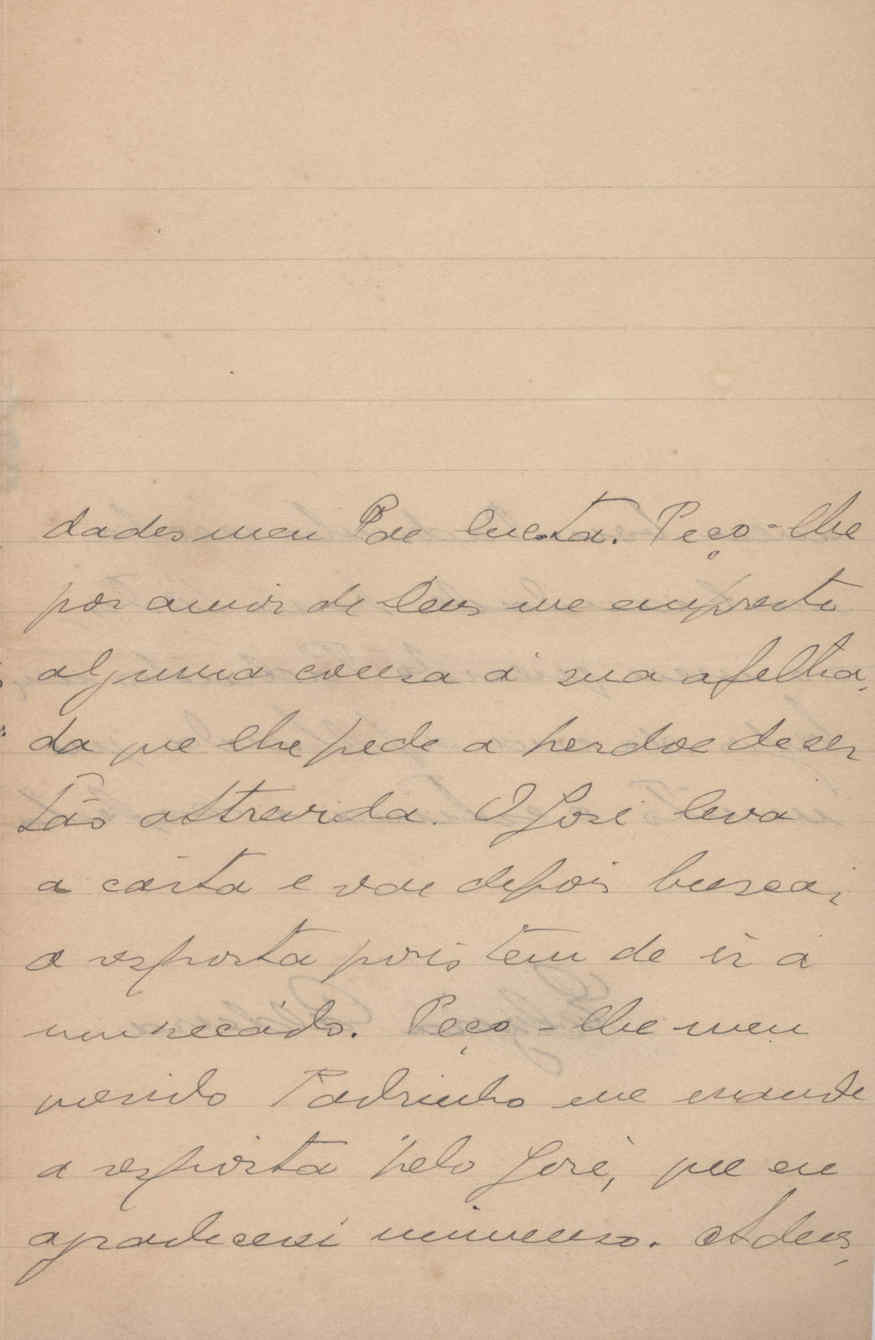 dades meu Pae lucta. Peço-lhe
por amor de Deus me empreste
alguma cousa á sua afilha,
da que lhe pede a perdoe de ser
tão attrevida. O José leva
a carta e vae depois buscar
a resposta pois tem de ir a
um recado. Peço-lhe meu
querido Padrinho me mande
a resposta pelo José, que eu
agradecerei immenso. Adeus,